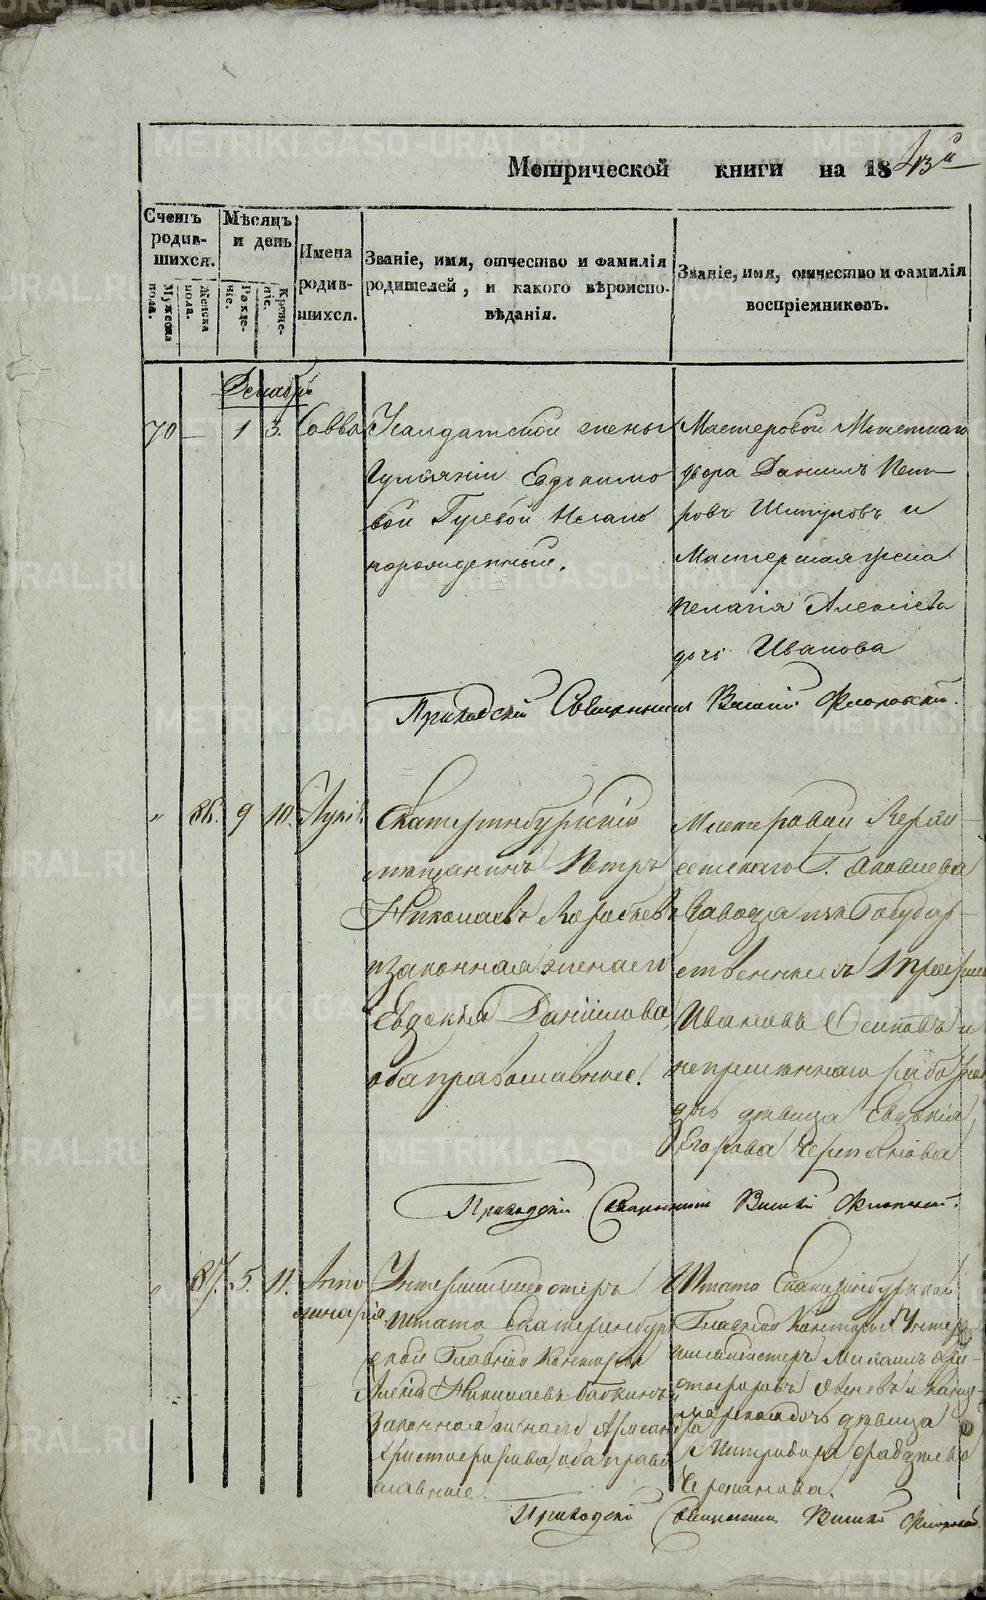 Метрической книги на 1843й
Счетъ родив-шихся.
Мужеска пола.
Женска пола.
Мѣсяцъ и день
Рожде-нiе.
Креще-нiе.
Имена родив-шихся.
Званiе, имя, отчество и фамилiя
родителей, и какого вѣроиспо-
вѣданiя.
Званiе, имя, отчество и фамилiя
воспрiемниковъ.
Декабрь
70 — 1 3. Савва
Усалдатской жены
Евдокимо
вой Гусевой Незако
норожденный.
Мастеровой Монетнаго
двора Данилъ Пет-
ровъ Шипуловъ и
Мастерская жена
Пелагiя Алексiева
дочь Иванова
Приходскiй Священникъ Василiй
" 86. 9 10.
Екатеринбургскiй
мещанинъ Петръ
Николаевъ Коробьевъ
и законная жена его
Евдокiя Данiилова
оба православные.
Мастеровой Верхъ-
исетскаго Г. Яковлева
Завода изъ Государ-
ственныхъ
Ивановъ Осиповъ и
непременнаго работника
дочь девица Евдокiя
Егорова Черепанова
Приходскiй Священникъ Василiй
" 87. 5. 11. Апол
линарiя.
Унтершихмейстеръ
штата Екатеринбург
ской Главной Конторы
Алексiй Николаевъ Бабкинъ и
Законная жена его Александра
Христофорова, оба право
славные.
Штата Екатеринбургской
Главной Конторы Унтер
шихмейстеръ Михаилъ Хри-
стофоровъ и
дочь девица
Митродора
Черепанова.
Приходскiй Священникъ Василiй
METRIKI.GASO-URAL.RU